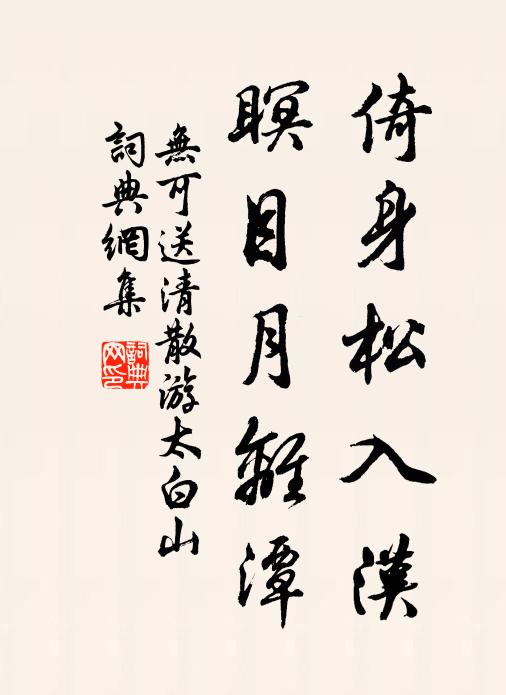 倚身松入漢
瞑目月離潭
無可送清散游太白山
詞典網集
詞典網印